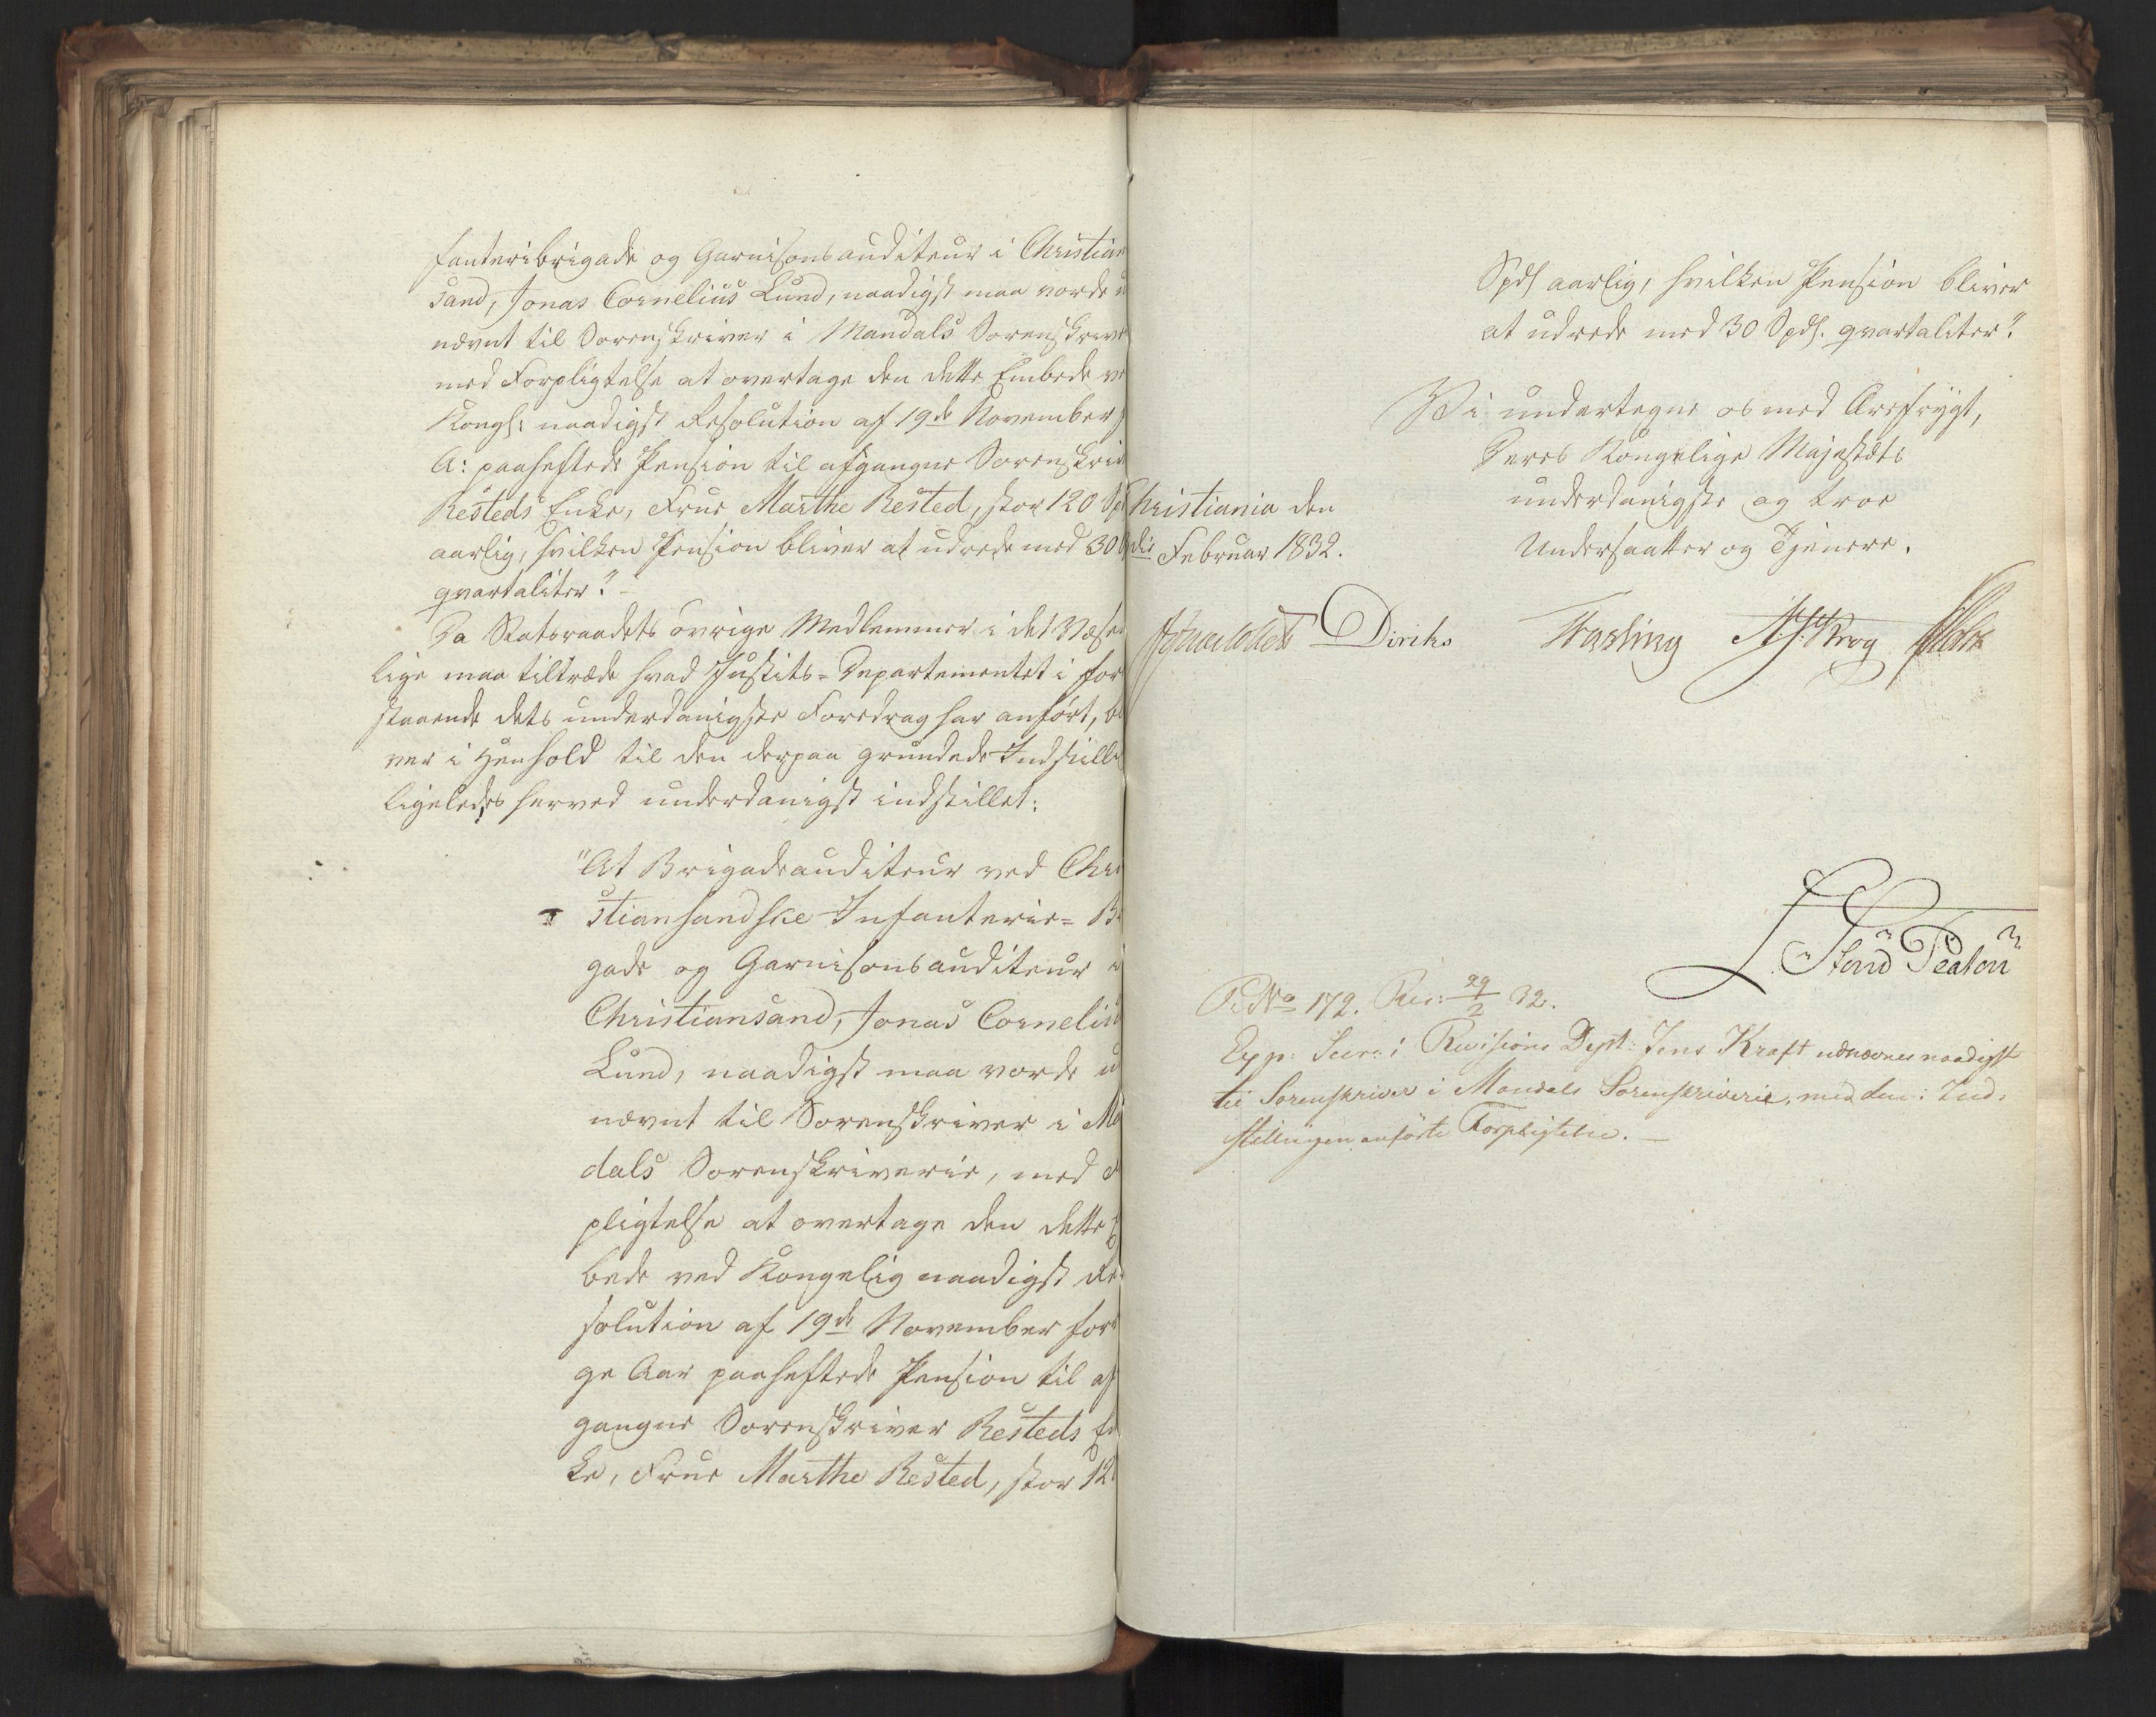 fanteribrigade og Garnisonsauditeur i Christian
sand, Jonas Cornelius Lund, naadigst maa vorde u
nævnt til Sorenskriver i Mandals Sorenskrive
med Forpligtelse at overtage den dette Embede ve
Kongl: naadigst Resolution af 19de November f
A: paaheftede Pension til afgangne Sorenskriv
Resteds Enke, Frue Marthe Rested, stor 120 Sp
aarlig, hvilken Pension bliver at udrede med 30
qvartaliter." -
Da Statsraadets øvrige Medlemmer i det Væsent
lige maa tiltræde hvad Justits-Departementet i for
staaende dets underdanigste Foredrag har anført, bli
ver i Henhold til den derpaa grundede Indstilli
ligeledes herved underdanigst indstillet:
"At Brigadeauditeur ved Chri
stiansandske Infanterie-Bri
gade og Garnisonsauditeur i
Christiansand, Jonas Cornelius
Lund, naadigst maa vorde u
nævnt til Sorenskriver i Ma
dals Sorenskriverie, med F
pligtelse at overtage den dette E
bede ved Kongelig naadigst Re
solution af 19de November forr
ge Aar paaheftede Pension til af
gangne Sorenskriver Resteds En
ke, Frue Marthe Rested, stor 12
Spdl aarlig, hvilken Pension bliver
at udrede med 30 Spdl. qvartaliter".
Vi undertegne os med Ærefrygt,
Deres Kongelige Majestæts
underdanigste og troe
Undersaatter og Tjenere.
Christiania den
die Februar 1832.
Diriks Fasting Krog
P. No 172. Res: 29/2 32.
Exp: Secr: i Revisions Dept: Jens Kraft udnævnes naadigst
til Sorenskriver i Mandals Sorenskriverie, med den i Ind-
stillingen anførte Forpligtelse. -